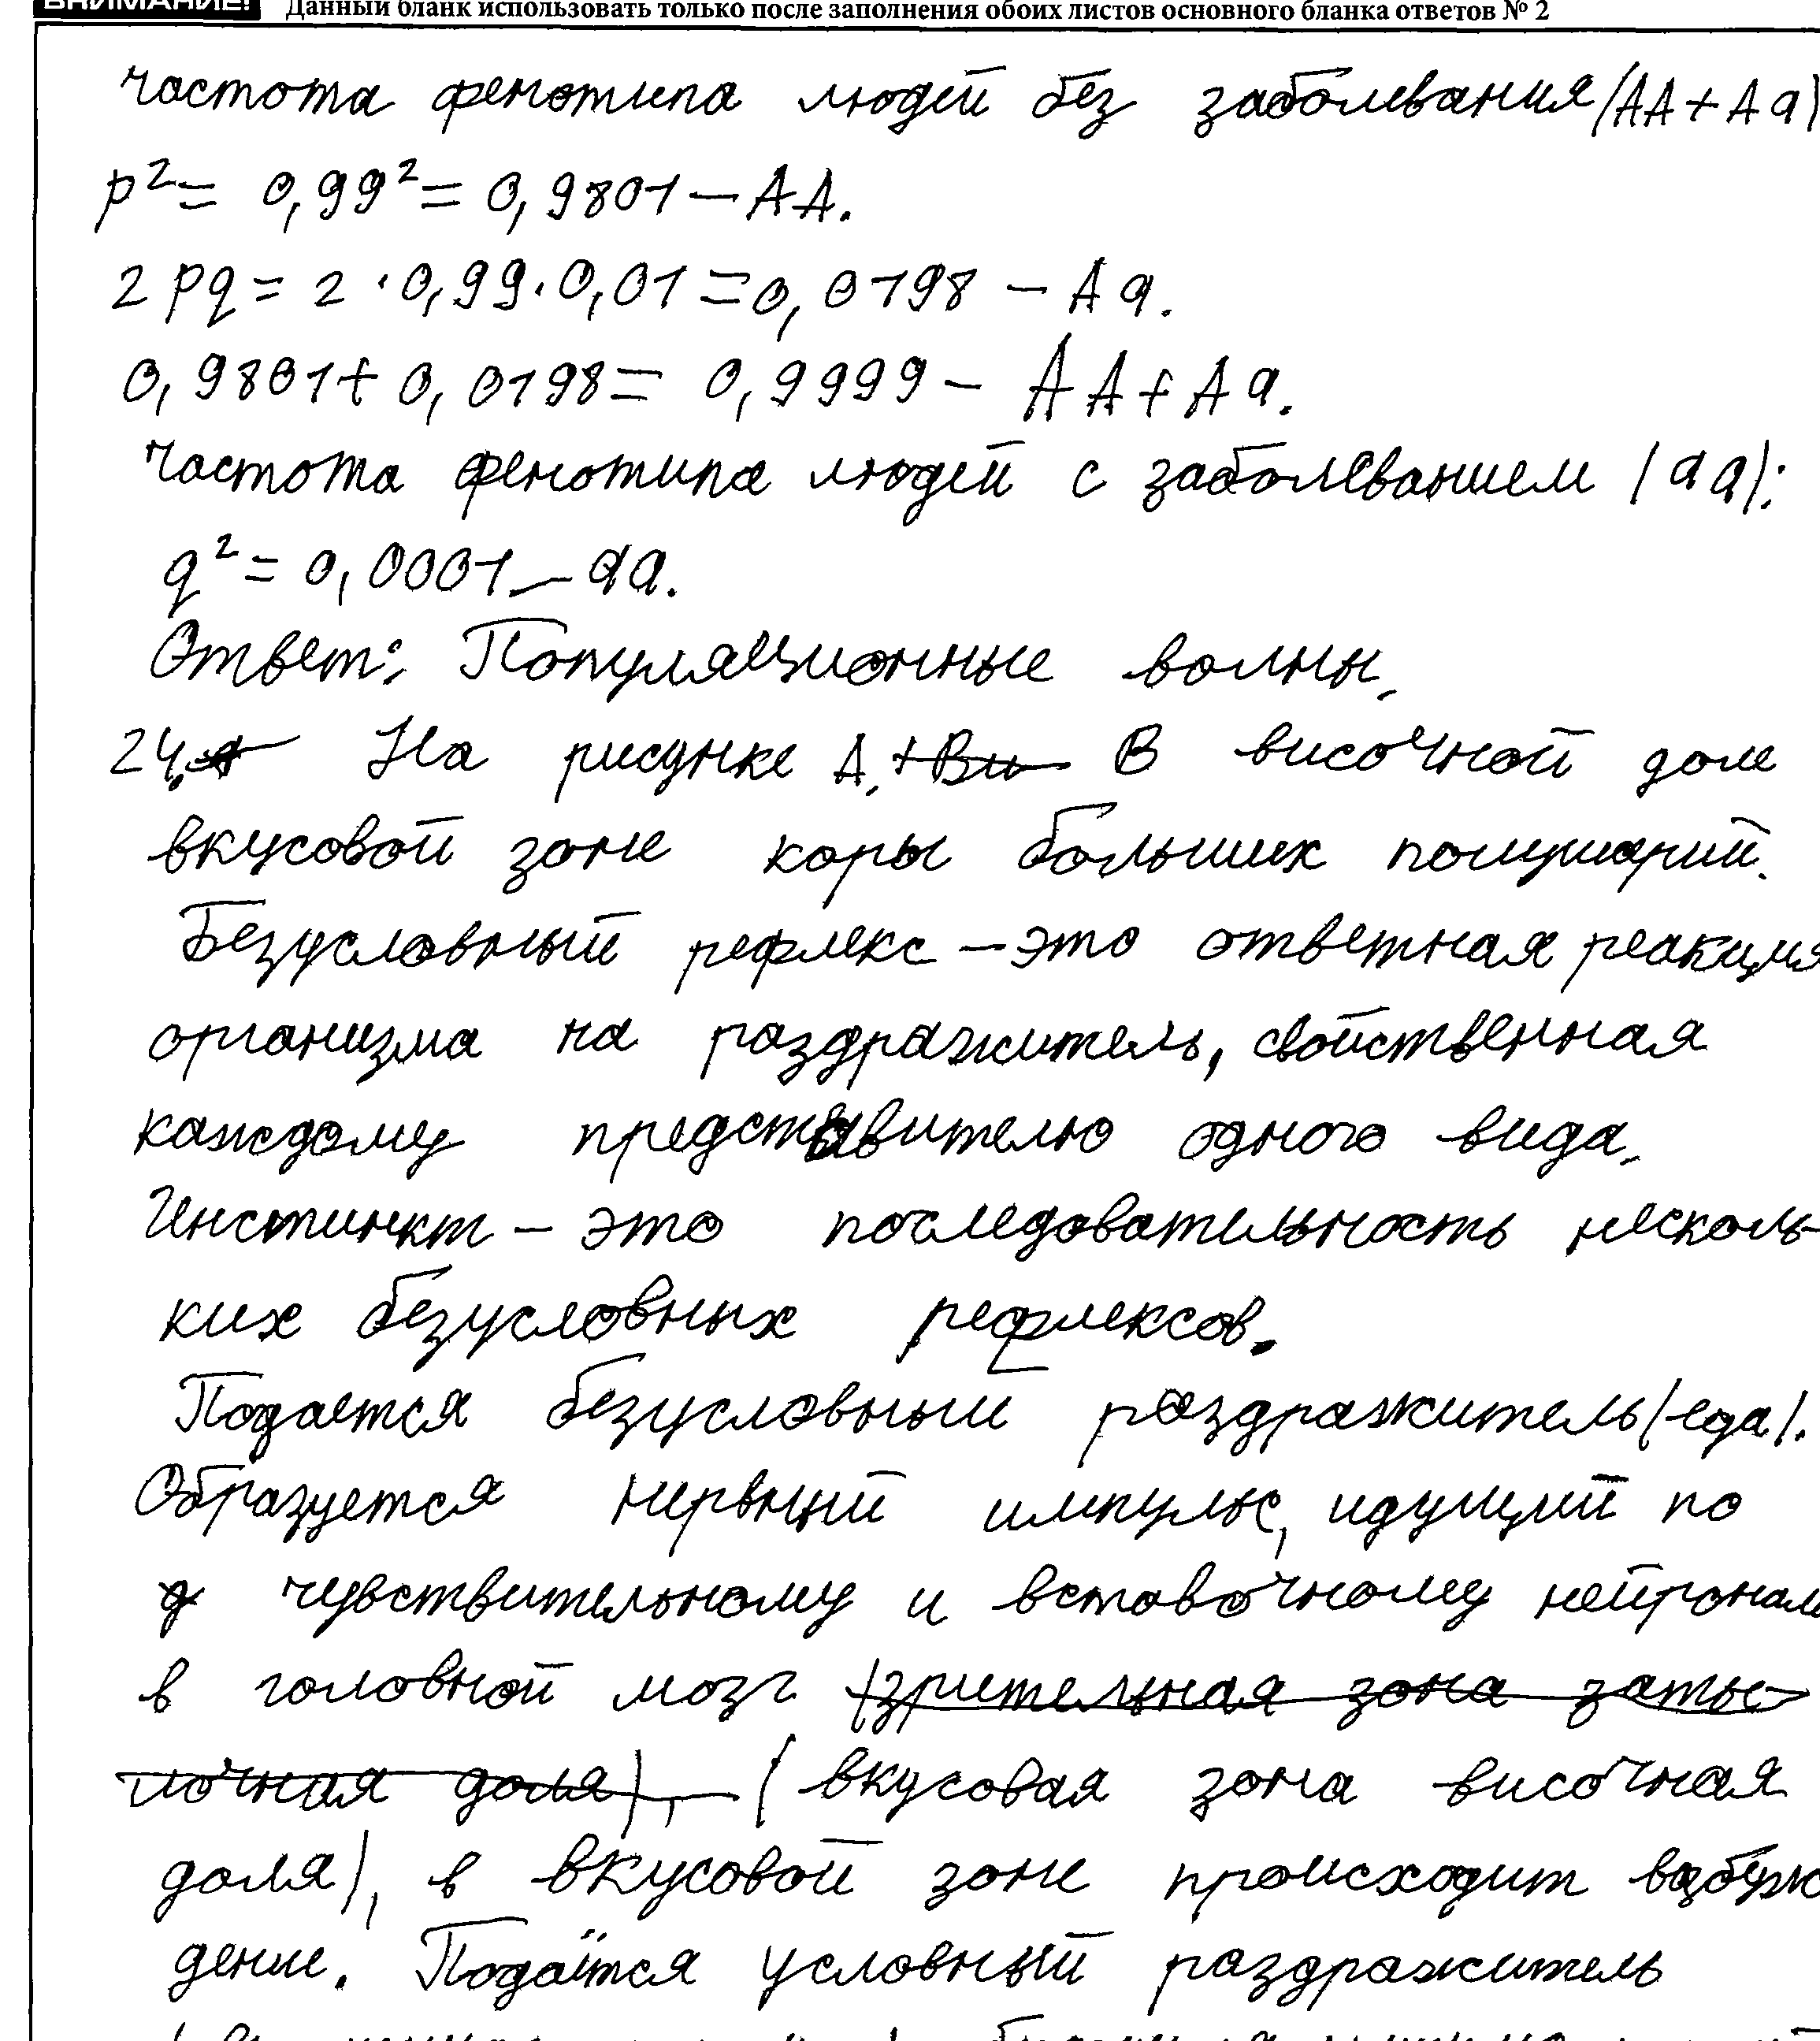 ВНИМАНИЕ! Данный бланк использовать только после заполнения обоих листов основного бланка ответов № 2
частота фенотипа людей без заболевания (AA + Aa)
p² = 0,99² = 0,9801 – AA.
2pq = 2 · 0,99 · 0,01 = 0,0198 – Aa.
0,9801 + 0,0198 = 0,9999 – AA + Aa.
Частота фенотипа людей с заболеванием (aa):
q² = 0,0001 – aa.
Ответ: Популяционные волны.
24. На рисунке А. + В и В височной доле
вкусовой зоне коры больших полушарий.
Безусловный рефлекс – это ответная реакция
организма на раздражитель, свойственная
каждому представителю одного вида.
Инстинкт – это последовательность несколь-
ких безусловных рефлексов.
Подается безусловный раздражитель (еда).
Образуется нервный импульс, идущий по
чувствительному и вставочному нейронам
в головной мозг (зрительная зона заты-
лочная доля), – (вкусовая зона височная
доля), в вкусовой зоне происходит возбуж
дение. Подаётся условный раздражитель